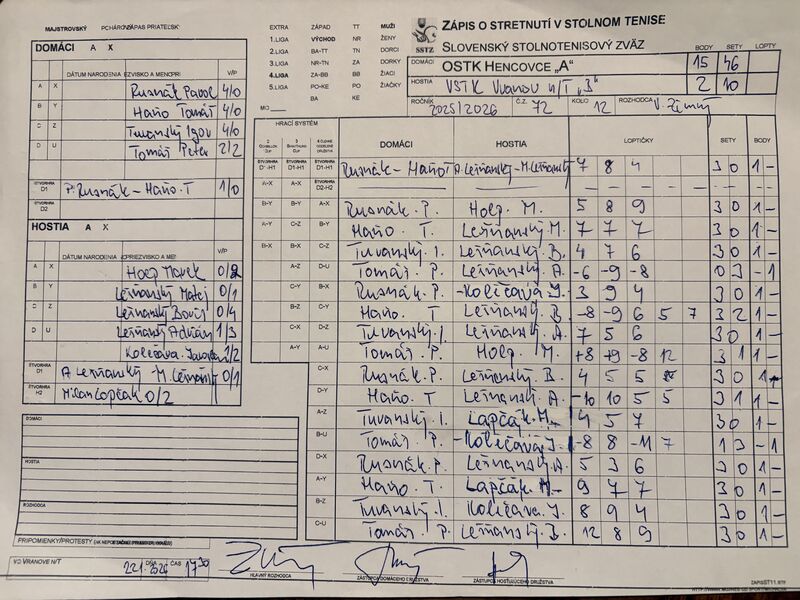 MAJSTROVSKÝ POHÁROVÝ ZÁPAS PRIATEĽSKÝ
DOMÁCI A X
DÁTUM NARODENIA V/P
A X Rusnák Pavol 4/0
B Y Haňo Tomáš 4/0
C Z Turanský Igor 4/0
D U Tomáš Peter 2/2
ŠTVORHRA D1 P. Rusnák - Haňo. T 1/0
ŠTVORHRA D2
HOSTIA A X
DÁTUM NARODENIA V/P
A X Holp Marek 0/2
B Y Lešňanský Matej 0/1
C Z Lešňanský 0/4
D U Lešňanský Adrián 1/3
Količava 1/2
ŠTVORHRA D1 A. Lešňanský - M. Lešňanský 0/1
ŠTVORHRA H2 Milan Lapčák 0/2
DOMÁCI
HOSTIA
ROZHODCA
PRIPOMIENKY/PROTESTY
VO VRANOVE N/T DŇA ČAS 17 30
EXTRA ZÁPAD TT MUŽI
1.LIGA VÝCHOD NR ŽENY
2.LIGA BA-TT TN DORCI
3.LIGA NR-TN ZA DORKY
4.LIGA ZA-BB BB ŽIACI
5.LIGA PO-KE PO ŽIAČKY
BA KE
MO
SSTZ
ZÁPIS O STRETNUTÍ V STOLNOM TENISE
SLOVENSKÝ STOLNOTENISOVÝ ZVÄZ
BODY SETY LOPTY
DOMÁCI OSTK HENCOVCE „A" 15 46
HOSTIA VSTK Vranov n/T „B" 2 10
ROČNÍK 2025/2026 Č.Z. 72 KOLO 12 ROZHODCA V. Zimný
HRACÍ SYSTÉM DOMÁCI HOSTIA LOPTIČKY SETY BODY
ŠTVORHRA D1-H1 ŠTVORHRA D1-H1 ŠTVORHRA D1-H1 Rusnák - Haňo T A. Lešňanský - M. Lešňanský 7 8 4 3 0 1 -
A-X A-X ŠTVORHRA D2-H2 — — — — —
B-Y B-Y A-X Rusnák. P. Holp M. 5 8 9 3 0 1 -
A-Y C-Z B-Y Haňo T. Lešňanský M. 7 7 7 3 0 1 -
B-X B-X C-Z Turanský. I. Lešňanský B. 4 7 6 3 0 1 -
A-Z D-U Tomáš. P. Lešňanský. A. -6 -9 -8 0 3 - 1
C-Y B-X Rusnák. P. Količava J. 3 9 4 3 0 1 -
B-Z C-Y Haňo. T Lešňanský. B. -8 -9 6 5 7 3 2 1 -
C-X D-Z Turanský. I. Lešňanský. A. 7 5 6 3 0 1 -
A-Y A-U Tomáš. P. Holp. M. +8 +9 -8 12 3 1 1 -
C-X Rusnák. P. Lešňanský. B. 4 5 5 3 0 1 -
D-Y Haňo T Lešňanský. A. -10 10 5 5 3 1 1 -
A-Z Turanský. I. Lapčák. M. 4 5 7 3 0 1 -
B-U Tomáš. P. Količava J. -8 8 -11 7 1 3 - 1
D-X Rusnák. P. Lešňanský. A. 5 3 6 3 0 1 -
A-Y Haňo. T. Lapčák. M. 9 7 7 3 0 1 -
B-Z Turanský. I. Količava. J. 8 9 4 3 0 1 -
C-U Tomáš P. Lešňanský. B. 12 8 9 3 0 1 -
HLAVNÝ ROZHODCA ZÁSTUPCA DOMÁCEHO DRUŽSTVA ZÁSTUPCA HOSŤUJÚCEHO DRUŽSTVA